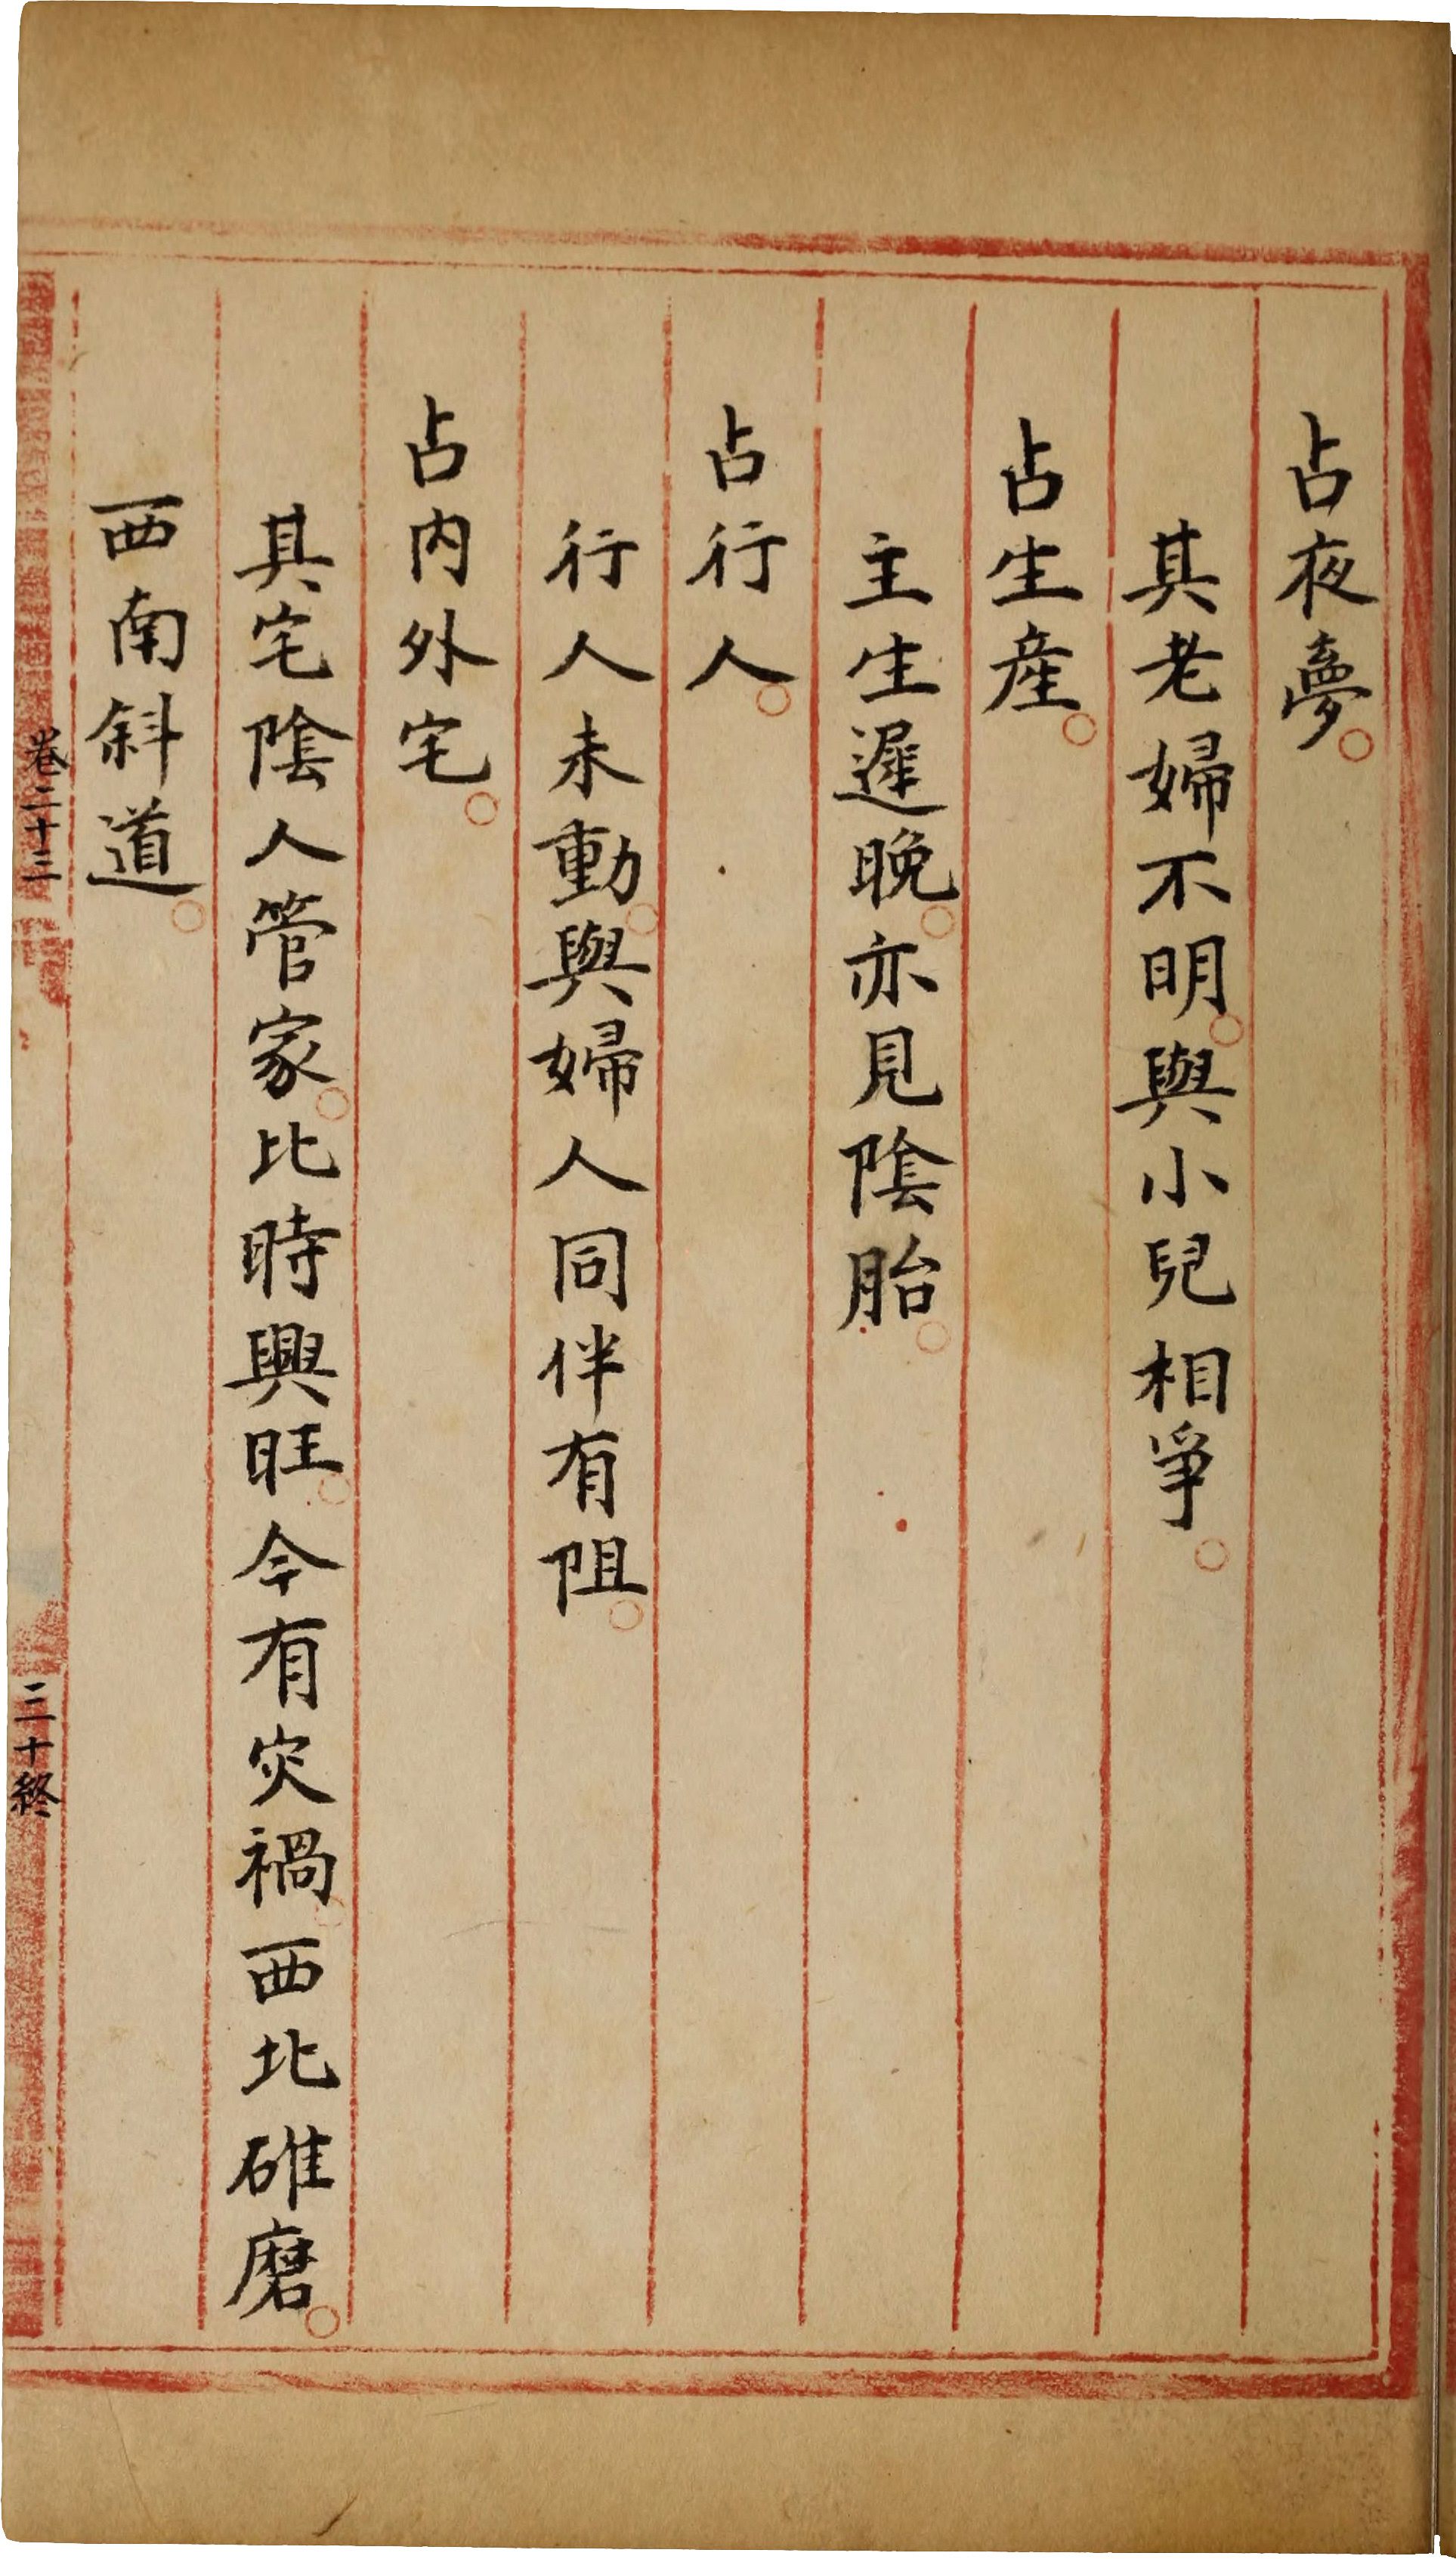 占夜夢○
其老婦不明○與小兒相爭○
占生産○
主生遲晚○亦見陰胎○
占行人○
行人未動○與婦人同伴有阻○
占内外宅○
其宅陰人管家○比時興旺○今有灾禍○西北碓磨○
西南斜道○
卷二十三
二十終